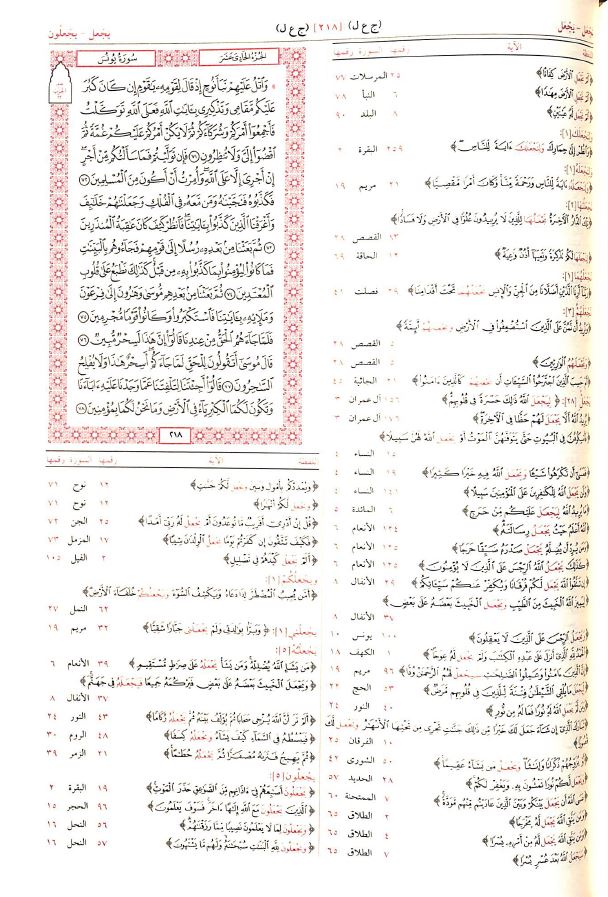 يجعل - يجعلون
(ج ع ل) [٢١٨] (ج ع ل)
يجعل - يجعل
الجزء الحادي عشر
سورة يونس
۞ وَاتْلُ عَلَيْهِمْ نَبَأَ نُوحٍ إِذْ قَالَ لِقَوْمِهِ يَا قَوْمِ إِن كَانَ كَبُرَ
عَلَيْكُم مَّقَامِي وَتَذْكِيرِي بِآيَاتِ اللَّهِ فَعَلَى اللَّهِ تَوَكَّلْتُ
فَأَجْمِعُوا أَمْرَكُمْ وَشُرَكَاءَكُمْ ثُمَّ لَا يَكُنْ أَمْرُكُمْ عَلَيْكُمْ غُمَّةً ثُمَّ
اقْضُوا إِلَيَّ وَلَا تُنظِرُونِ ٧١ فَإِن تَوَلَّيْتُمْ فَمَا سَأَلْتُكُم مِّنْ أَجْرٍ
إِنْ أَجْرِيَ إِلَّا عَلَى اللَّهِ وَأُمِرْتُ أَنْ أَكُونَ مِنَ الْمُسْلِمِينَ ٧٢
فَكَذَّبُوهُ فَنَجَّيْنَاهُ وَمَن مَّعَهُ فِي الْفُلْكِ وَجَعَلْنَاهُمْ خَلَائِفَ
وَأَغْرَقْنَا الَّذِينَ كَذَّبُوا بِآيَاتِنَا فَانظُرْ كَيْفَ كَانَ عَاقِبَةُ الْمُنذَرِينَ
٧٣ ثُمَّ بَعَثْنَا مِن بَعْدِهِ رُسُلًا إِلَىٰ قَوْمِهِمْ فَجَاءُوهُم بِالْبَيِّنَاتِ
فَمَا كَانُوا لِيُؤْمِنُوا بِمَا كَذَّبُوا بِهِ مِن قَبْلُ كَذَٰلِكَ نَطْبَعُ عَلَىٰ قُلُوبِ
الْمُعْتَدِينَ ٧٤ ثُمَّ بَعَثْنَا مِن بَعْدِهِم مُّوسَىٰ وَهَارُونَ إِلَىٰ فِرْعَوْنَ
وَمَلَئِهِ بِآيَاتِنَا فَاسْتَكْبَرُوا وَكَانُوا قَوْمًا مُّجْرِمِينَ ٧٥
فَلَمَّا جَاءَهُمُ الْحَقُّ مِنْ عِندِنَا قَالُوا إِنَّ هَٰذَا لَسِحْرٌ مُّبِينٌ ٧٦
قَالَ مُوسَىٰ أَتَقُولُونَ لِلْحَقِّ لَمَّا جَاءَكُمْ أَسِحْرٌ هَٰذَا وَلَا يُفْلِحُ
السَّاحِرُونَ ٧٧ قَالُوا أَجِئْتَنَا لِتَلْفِتَنَا عَمَّا وَجَدْنَا عَلَيْهِ آبَاءَنَا
وَتَكُونَ لَكُمَا الْكِبْرِيَاءُ فِي الْأَرْضِ وَمَا نَحْنُ لَكُمَا بِمُؤْمِنِينَ ٧٨
٢١٨
الآية رقمها السورة رقمها
﴿أَلَمْ نَجْعَلِ الْأَرْضَ كِفَاتًا﴾ ٢٥ المرسلات ٧٧
﴿أَلَمْ نَجْعَلِ الْأَرْضَ مِهَادًا﴾ ٦ النبأ ٧٨
﴿أَلَمْ نَجْعَل لَّهُ عَيْنَيْنِ﴾ ٨ البلد ٩٠
وَلِنَجْعَلَكَ [١]:
﴿وَانظُرْ إِلَىٰ حِمَارِكَ وَلِنَجْعَلَكَ آيَةً لِّلنَّاسِ﴾ ٢٥٩ البقرة ٢
وَلِنَجْعَلَهُ [١]:
﴿وَلِنَجْعَلَهُ آيَةً لِّلنَّاسِ وَرَحْمَةً مِّنَّا وَكَانَ أَمْرًا مَّقْضِيًّا﴾ ٢١ مريم ١٩
الدَّارُ الْآخِرَةُ نَجْعَلُهَا لِلَّذِينَ لَا يُرِيدُونَ عُلُوًّا فِي الْأَرْضِ وَلَا فَسَادًا﴾
٨٣ القصص ٢٨
﴿لِنَجْعَلَهَا لَكُمْ تَذْكِرَةً وَتَعِيَهَا أُذُنٌ وَاعِيَةٌ﴾ ١٢ الحاقة ٦٩
نَجْعَلْهُمَا [١]:
أَرِنَا الَّذَيْنِ أَضَلَّانَا مِنَ الْجِنِّ وَالْإِنسِ نَجْعَلْهُمَا تَحْتَ أَقْدَامِنَا﴾ ٢٩ فصلت ٤١
نَجْعَلَهُمْ [٣]:
﴿وَنُرِيدُ أَن نَّمُنَّ عَلَى الَّذِينَ اسْتُضْعِفُوا فِي الْأَرْضِ وَنَجْعَلَهُمْ أَئِمَّةً﴾
٥ القصص ٢٨
﴿وَنَجْعَلَهُمُ الْوَارِثِينَ﴾ ٥ القصص ٢٨
حَسِبَ الَّذِينَ اجْتَرَحُوا السَّيِّئَاتِ أَن نَّجْعَلَهُمْ كَالَّذِينَ آمَنُوا﴾ ٢١ الجاثية ٤٥
يَجْعَل [٢٨]: ﴿لِيَجْعَلَ اللَّهُ ذَٰلِكَ حَسْرَةً فِي قُلُوبِهِمْ﴾ ١٥٦ آل عمران ٣
﴿يُرِيدُ اللَّهُ أَلَّا يَجْعَلَ لَهُمْ حَظًّا فِي الْآخِرَةِ﴾ ١٧٦ آل عمران ٣
فَأَمْسِكُوهُنَّ فِي الْبُيُوتِ حَتَّىٰ يَتَوَفَّاهُنَّ الْمَوْتُ أَوْ يَجْعَلَ اللَّهُ لَهُنَّ سَبِيلًا﴾
١٥ النساء ٤
﴿فَعَسَىٰ أَن تَكْرَهُوا شَيْئًا وَيَجْعَلَ اللَّهُ فِيهِ خَيْرًا كَثِيرًا﴾ ١٩ النساء ٤
﴿وَلَن يَجْعَلَ اللَّهُ لِلْكَافِرِينَ عَلَى الْمُؤْمِنِينَ سَبِيلًا﴾ ١٤١ النساء ٤
﴿مَا يُرِيدُ اللَّهُ لِيَجْعَلَ عَلَيْكُم مِّنْ حَرَجٍ﴾ ٦ المائدة ٥
﴿اللَّهُ أَعْلَمُ حَيْثُ يَجْعَلُ رِسَالَتَهُ﴾ ١٢٤ الأنعام ٦
﴿وَمَن يُرِدْ أَن يُضِلَّهُ يَجْعَلْ صَدْرَهُ ضَيِّقًا حَرَجًا﴾ ١٢٥ الأنعام ٦
﴿كَذَٰلِكَ يَجْعَلُ اللَّهُ الرِّجْسَ عَلَى الَّذِينَ لَا يُؤْمِنُونَ﴾ ١٢٥ الأنعام ٦
﴿إِن تَتَّقُوا اللَّهَ يَجْعَل لَّكُمْ فُرْقَانًا وَيُكَفِّرْ عَنكُمْ سَيِّئَاتِكُمْ﴾ ٢٩ الأنفال ٨
لِيَمِيزَ اللَّهُ الْخَبِيثَ مِنَ الطَّيِّبِ وَيَجْعَلَ الْخَبِيثَ بَعْضَهُ عَلَىٰ بَعْضٍ﴾
٣٧ الأنفال ٨
﴿وَيَجْعَلُ الرِّجْسَ عَلَى الَّذِينَ لَا يَعْقِلُونَ﴾ ١٠٠ يونس ١٠
الْحَمْدُ لِلَّهِ الَّذِي أَنزَلَ عَلَىٰ عَبْدِهِ الْكِتَابَ وَلَمْ يَجْعَل لَّهُ عِوَجًا﴾ ١ الكهف ١٨
الَّذِينَ آمَنُوا وَعَمِلُوا الصَّالِحَاتِ سَيَجْعَلُ لَهُمُ الرَّحْمَٰنُ وُدًّا﴾ ٩٦ مريم ١٩
﴿لِيَجْعَلَ مَا يُلْقِي الشَّيْطَانُ فِتْنَةً لِّلَّذِينَ فِي قُلُوبِهِم مَّرَضٌ﴾ ٥٣ الحج ٢٢
﴿وَمَن لَّمْ يَجْعَلِ اللَّهُ لَهُ نُورًا فَمَا لَهُ مِن نُّورٍ﴾ ٤٠ النور ٢٤
تَبَارَكَ الَّذِي إِن شَاءَ جَعَلَ لَكَ خَيْرًا مِّن ذَٰلِكَ جَنَّاتٍ تَجْرِي مِن تَحْتِهَا الْأَنْهَارُ وَيَجْعَل لَّكَ
قُصُورًا﴾ ١٠ الفرقان ٢٥
﴿أَوْ يُزَوِّجُهُمْ ذُكْرَانًا وَإِنَاثًا وَيَجْعَلُ مَن يَشَاءُ عَقِيمًا﴾ ٥٠ الشورى ٤٢
وَيَجْعَل لَّكُمْ نُورًا تَمْشُونَ بِهِ وَيَغْفِرْ لَكُمْ﴾ ٢٨ الحديد ٥٧
عَسَى اللَّهُ أَن يَجْعَلَ بَيْنَكُمْ وَبَيْنَ الَّذِينَ عَادَيْتُم مِّنْهُم مَّوَدَّةً﴾ ٧ الممتحنة ٦٠
وَمَن يَتَّقِ اللَّهَ يَجْعَل لَّهُ مَخْرَجًا﴾ ٢ الطلاق ٦٥
وَمَن يَتَّقِ اللَّهَ يَجْعَل لَّهُ مِنْ أَمْرِهِ يُسْرًا﴾ ٤ الطلاق ٦٥
سَيَجْعَلُ اللَّهُ بَعْدَ عُسْرٍ يُسْرًا﴾ ٧ الطلاق ٦٥
اللفظة الآية رقمها السورة رقمها
﴿وَيُمْدِدْكُم بِأَمْوَالٍ وَبَنِينَ وَيَجْعَل لَّكُمْ جَنَّاتٍ﴾ ١٢ نوح ٧١
﴿وَيَجْعَل لَّكُمْ أَنْهَارًا﴾ ١٢ نوح ٧١
﴿قُلْ إِنْ أَدْرِي أَقَرِيبٌ مَّا تُوعَدُونَ أَمْ يَجْعَلُ لَهُ رَبِّي أَمَدًا﴾ ٢٥ الجن ٧٢
﴿فَكَيْفَ تَتَّقُونَ إِن كَفَرْتُمْ يَوْمًا يَجْعَلُ الْوِلْدَانَ شِيبًا﴾ ١٧ المزمل ٧٣
﴿أَلَمْ يَجْعَلْ كَيْدَهُمْ فِي تَضْلِيلٍ﴾ ٢ الفيل ١٠٥
وَيَجْعَلُكُمْ [١]:
﴿أَمَّن يُجِيبُ الْمُضْطَرَّ إِذَا دَعَاهُ وَيَكْشِفُ السُّوءَ وَيَجْعَلُكُمْ خُلَفَاءَ الْأَرْضِ﴾
٦٢ النمل ٢٧
يَجْعَلْنِي [١]: ﴿وَبَرًّا بِوَالِدَتِي وَلَمْ يَجْعَلْنِي جَبَّارًا شَقِيًّا﴾ ٣٢ مريم ١٩
يَجْعَلُهُ [٥]:
﴿مَن يَشَإِ اللَّهُ يُضْلِلْهُ وَمَن يَشَأْ يَجْعَلْهُ عَلَىٰ صِرَاطٍ مُّسْتَقِيمٍ﴾ ٣٩ الأنعام ٦
﴿وَيَجْعَلَ الْخَبِيثَ بَعْضَهُ عَلَىٰ بَعْضٍ فَيَرْكُمَهُ جَمِيعًا فَيَجْعَلَهُ فِي جَهَنَّمَ﴾
٣٧ الأنفال ٨
﴿أَلَمْ تَرَ أَنَّ اللَّهَ يُزْجِي سَحَابًا ثُمَّ يُؤَلِّفُ بَيْنَهُ ثُمَّ يَجْعَلُهُ رُكَامًا﴾ ٤٣ النور ٢٤
﴿فَيَبْسُطُهُ فِي السَّمَاءِ كَيْفَ يَشَاءُ وَيَجْعَلُهُ كِسَفًا﴾ ٤٨ الروم ٣٠
﴿ثُمَّ يَهِيجُ فَتَرَاهُ مُصْفَرًّا ثُمَّ يَجْعَلُهُ حُطَامًا﴾ ٢١ الزمر ٣٩
يَجْعَلُونَ [٥]:
﴿يَجْعَلُونَ أَصَابِعَهُمْ فِي آذَانِهِم مِّنَ الصَّوَاعِقِ حَذَرَ الْمَوْتِ﴾ ١٩ البقرة ٢
﴿الَّذِينَ يَجْعَلُونَ مَعَ اللَّهِ إِلَٰهًا آخَرَ فَسَوْفَ يَعْلَمُونَ﴾ ٩٦ الحجر ١٥
﴿وَيَجْعَلُونَ لِمَا لَا يَعْلَمُونَ نَصِيبًا مِّمَّا رَزَقْنَاهُمْ﴾ ٥٦ النحل ١٦
﴿وَيَجْعَلُونَ لِلَّهِ الْبَنَاتِ سُبْحَانَهُ وَلَهُم مَّا يَشْتَهُونَ﴾ ٥٧ النحل ١٦